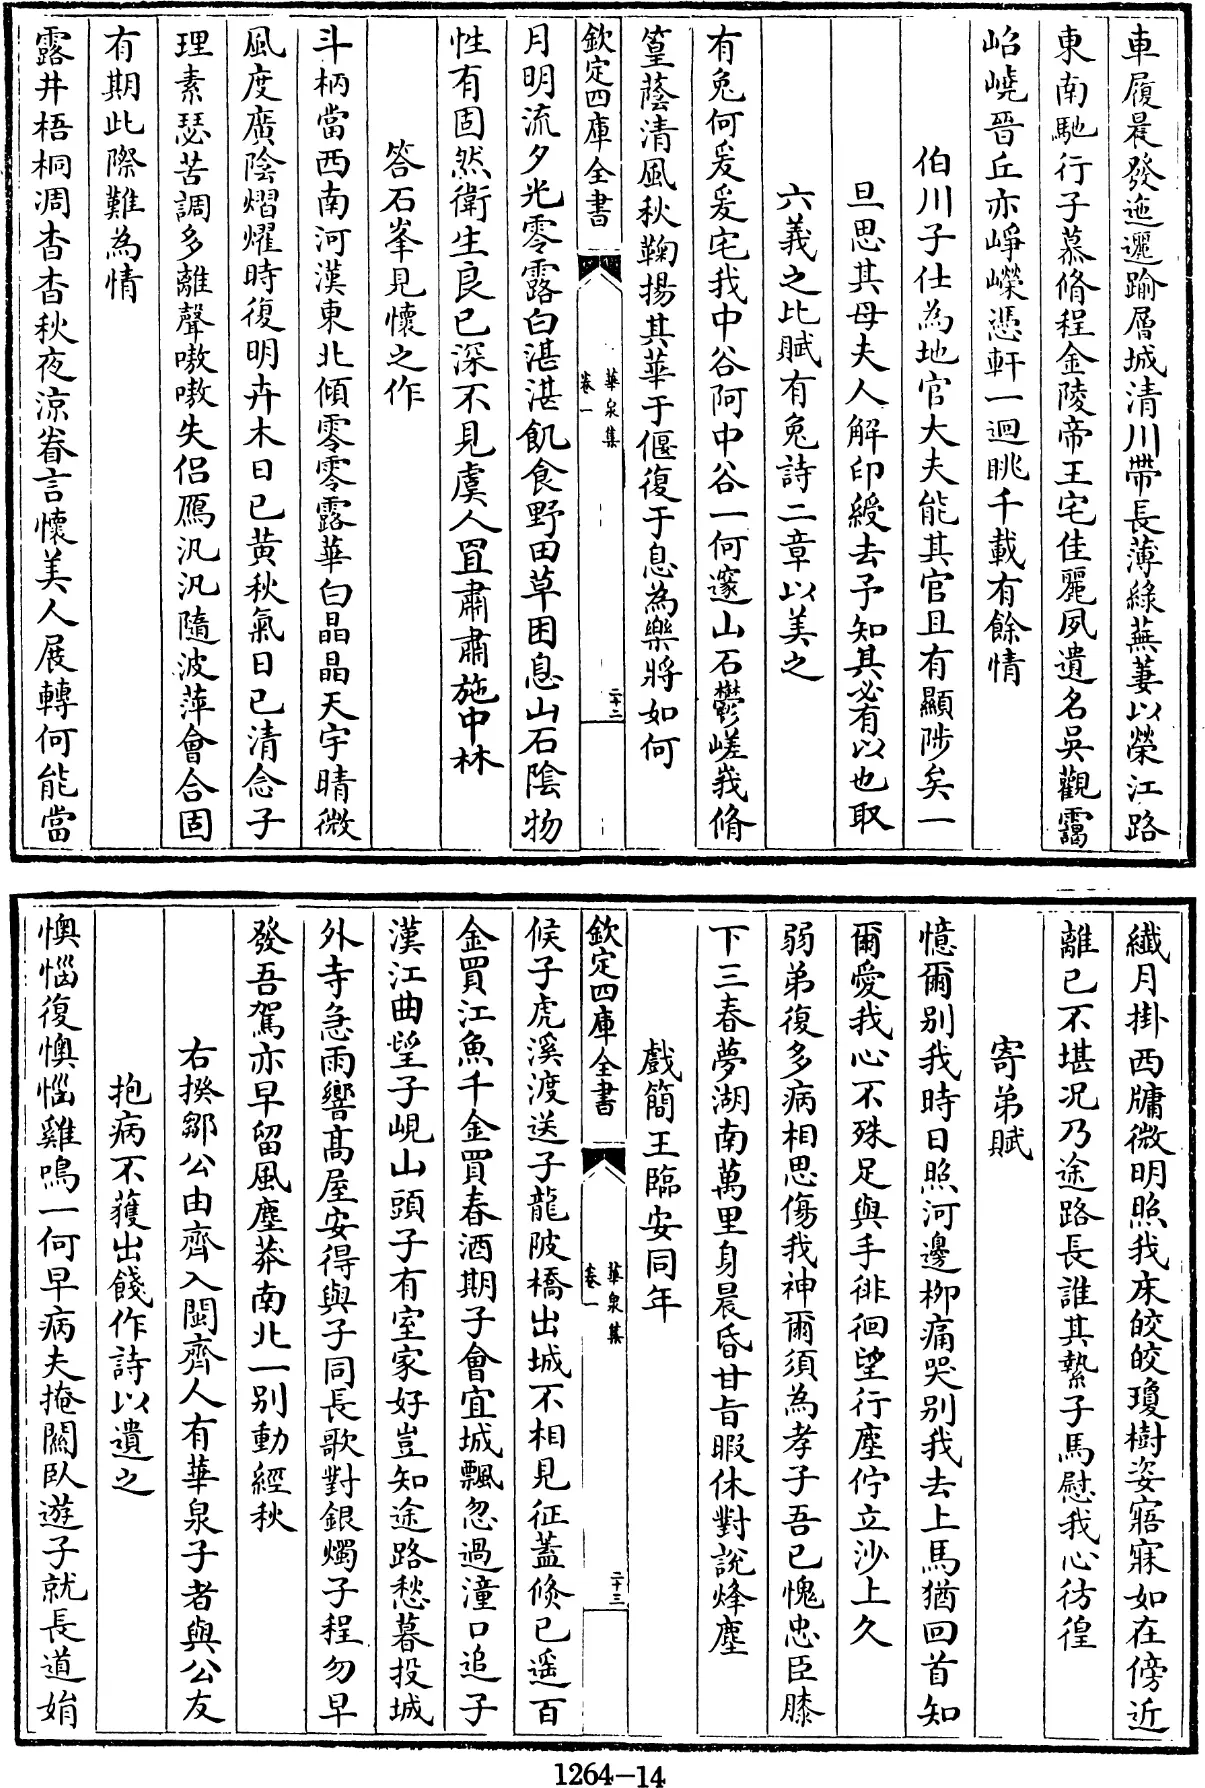 車履晨發迤邐踰層城清川帶長薄綠蕪萋以榮江路
東南馳行子慕脩程金陵帝王宅佳麗夙遺名吳觀靄
岹嶢晉丘亦崢嶸憑軒一迴眺千載有餘情
伯川子仕為地官大夫能其官且有顯陟矣一
旦思其母夫人解印綬去予知其必有以也取
六義之比賦有兔詩二章以美之
有兔何爰爰宅我中谷阿中谷一何邃山石鬱嵯峩脩
篁蔭清風秋鞠揚其華于偃復于息為樂將如何
欽定四庫全書
華泉集
卷一
二十二
月明流夕光零露白湛湛飢食野田草困息山石陰物
性有固然衛生良已深不見虞人罝肅肅施中林
答石峯見懷之作
斗柄當西南河漢東北傾零零露華白晶晶天宇晴微
風度廣陰熠燿時復明卉木日已黄秋氣日已清念子
理素瑟苦調多離聲嗷嗷失侣鴈汎汎隨波萍會合固
有期此際難為情
露井梧桐凋杳杳秋夜凉眷言懷美人展轉何能當
纖月掛西牖微明照我床皎皎瓊樹姿寤寐如在傍近
離已不堪况乃途路長誰其縶子馬慰我心彷徨
寄弟賦
憶爾别我時日照河邊栁痛哭别我去上馬猶回首知
爾愛我心不殊足與手徘徊望行塵佇立沙上久
弱弟復多病相思傷我神爾須為孝子吾已愧忠臣膝
下三春夢湖南萬里身晨昏甘旨暇休對説烽塵
戲簡王臨安同年
候子虎溪渡送子龍陂橋出城不相見征蓋倐已遥百
欽定四庫全書
華泉集
卷一
二十三
金買江魚千金買春酒期子會宜城飄忽過潼口追子
漢江曲望子峴山頭子有室家好豈知途路愁暮投城
外寺急雨響髙屋安得與子同長歌對銀燭子程勿早
發吾駕亦早留風塵莽南北一别動經秋
右揆鄒公由齊入閩齊人有華泉子者與公友
抱病不獲出餞作詩以遺之
懊惱復懊惱雞鳴一何早病夫掩關臥遊子就長道娟
1264-14